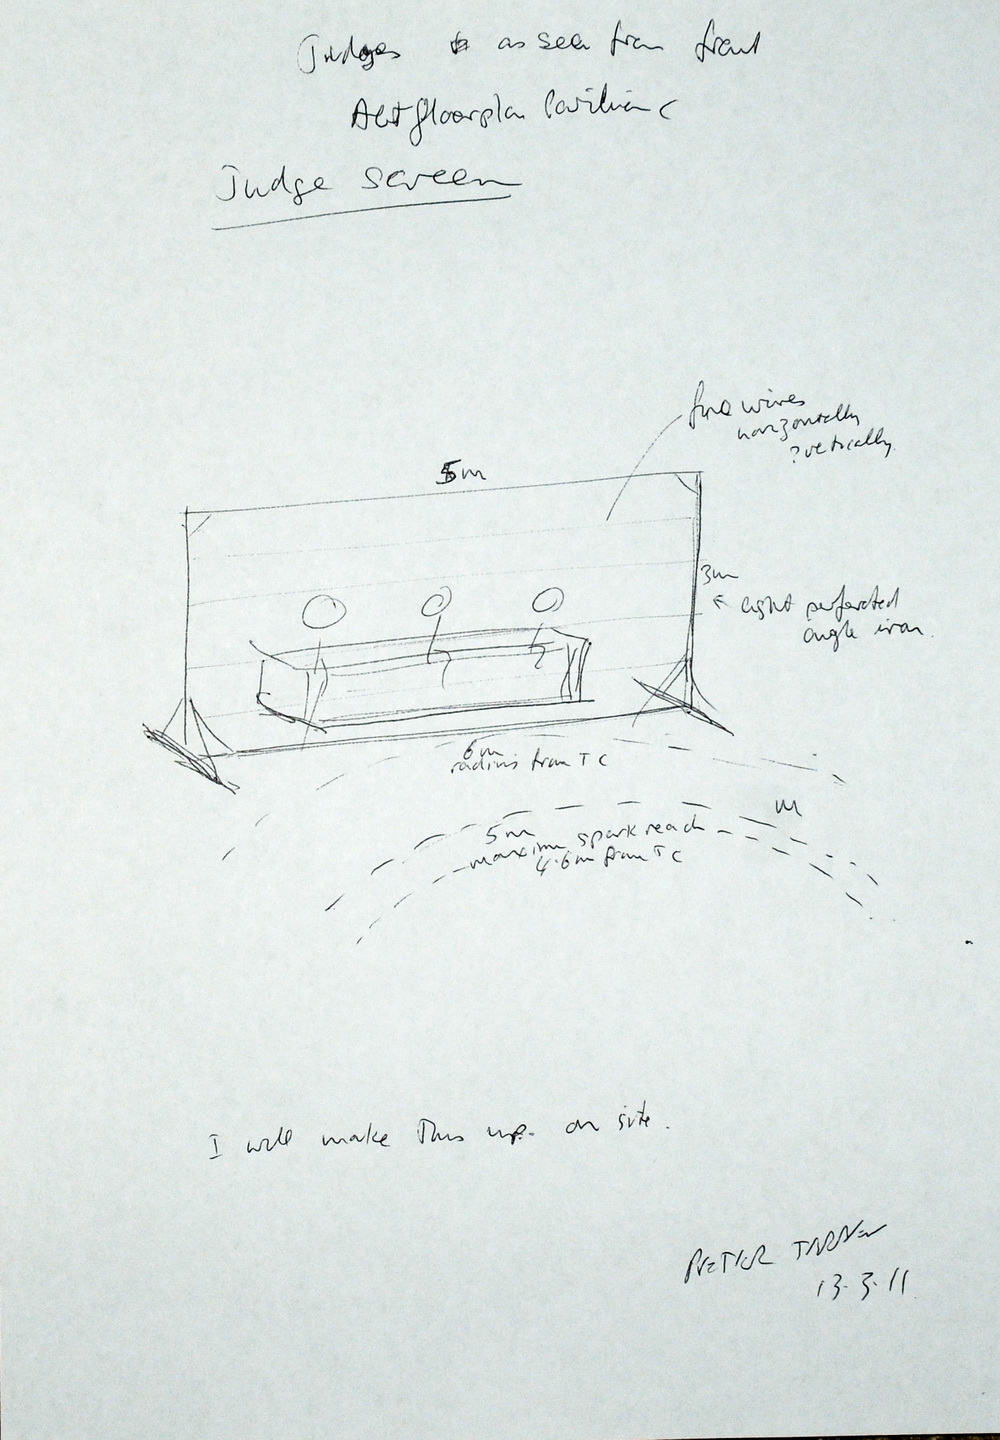 Judges as seen from front
floorplan Pavilion C
Judge screen
fine wires
horizontally
? vertically
5m
3m
light perforated
angle iron.
6m
radius from TC
M
5m
maximum spark reach
4.6m from TC
I will make this up on site.
PETER
13.3.11